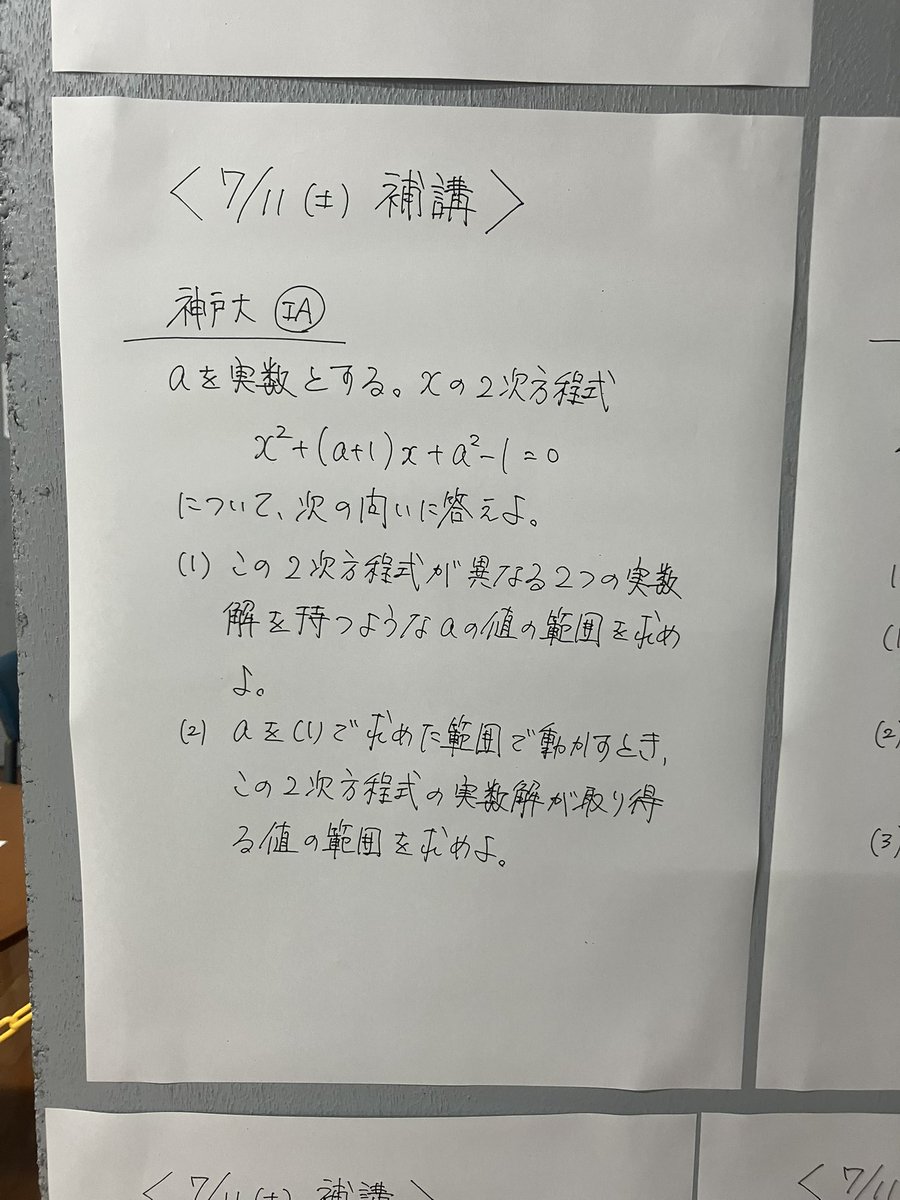 <7/11(土) 補講>
神戸大 ⅠA
aを実数とする。xの2次方程式
x²+(a+1)x+a²-1=0
について、次の問いに答えよ。
(1) この2次方程式が異なる2つの実数
解を持つようなaの値の範囲を求め
よ。
(2) aを(1)で求めた範囲で動かすとき,
この2次方程式の実数解が取り得
る値の範囲を求めよ。
(2)
(3)
<7/11(土) 補講>
<7/11